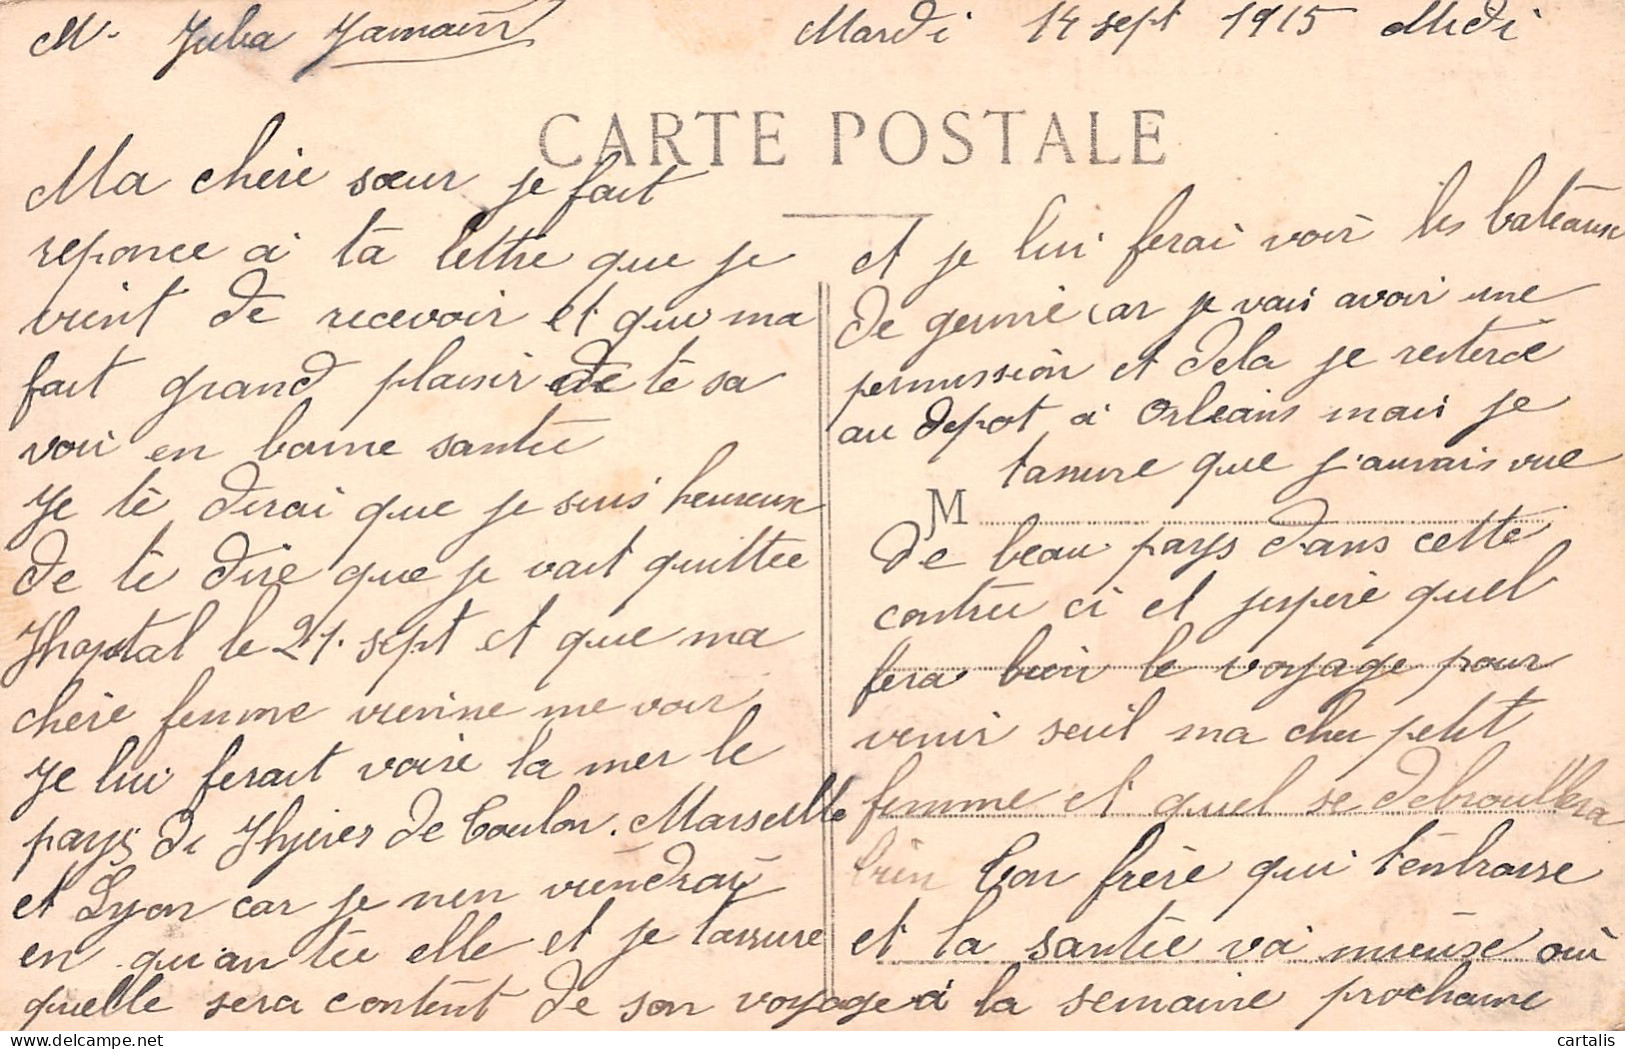 M. Juba Jamain
Mardi 14 sept 1915 Midi
CARTE POSTALE
Ma chère sœur je fait
reponce a ta lettre que je
vient de recevoir et qui ma
fait grand plaisir de te sa
voir en bonne santée
Je te dirai que je suis heureux
de te dire que je vait quittee
lhopital le 21. sept et que ma
chère femme vienne me voir
Je lui ferait voire la mer le
pays de Hyeres de Toulon. Marseille
et Lyon car je nen viendrai
en qu'an tée elle et je tassure
quelle sera content de son voyage
et je lui ferai voir les bateaux
de gerrie car je vais avoir une
permission et dela je resterce
au depot a Orleans mais je
tassure que j'aurais vue
M
de beau pays dans cette
contrée ci et jespere quel
fera bien le voyage pour
venir seul ma cher petit
femme et quel se debrouillera
bien Ton frère qui t'embrasse
et la santée va mieuse oui
a la semaine prochaine
cartalis